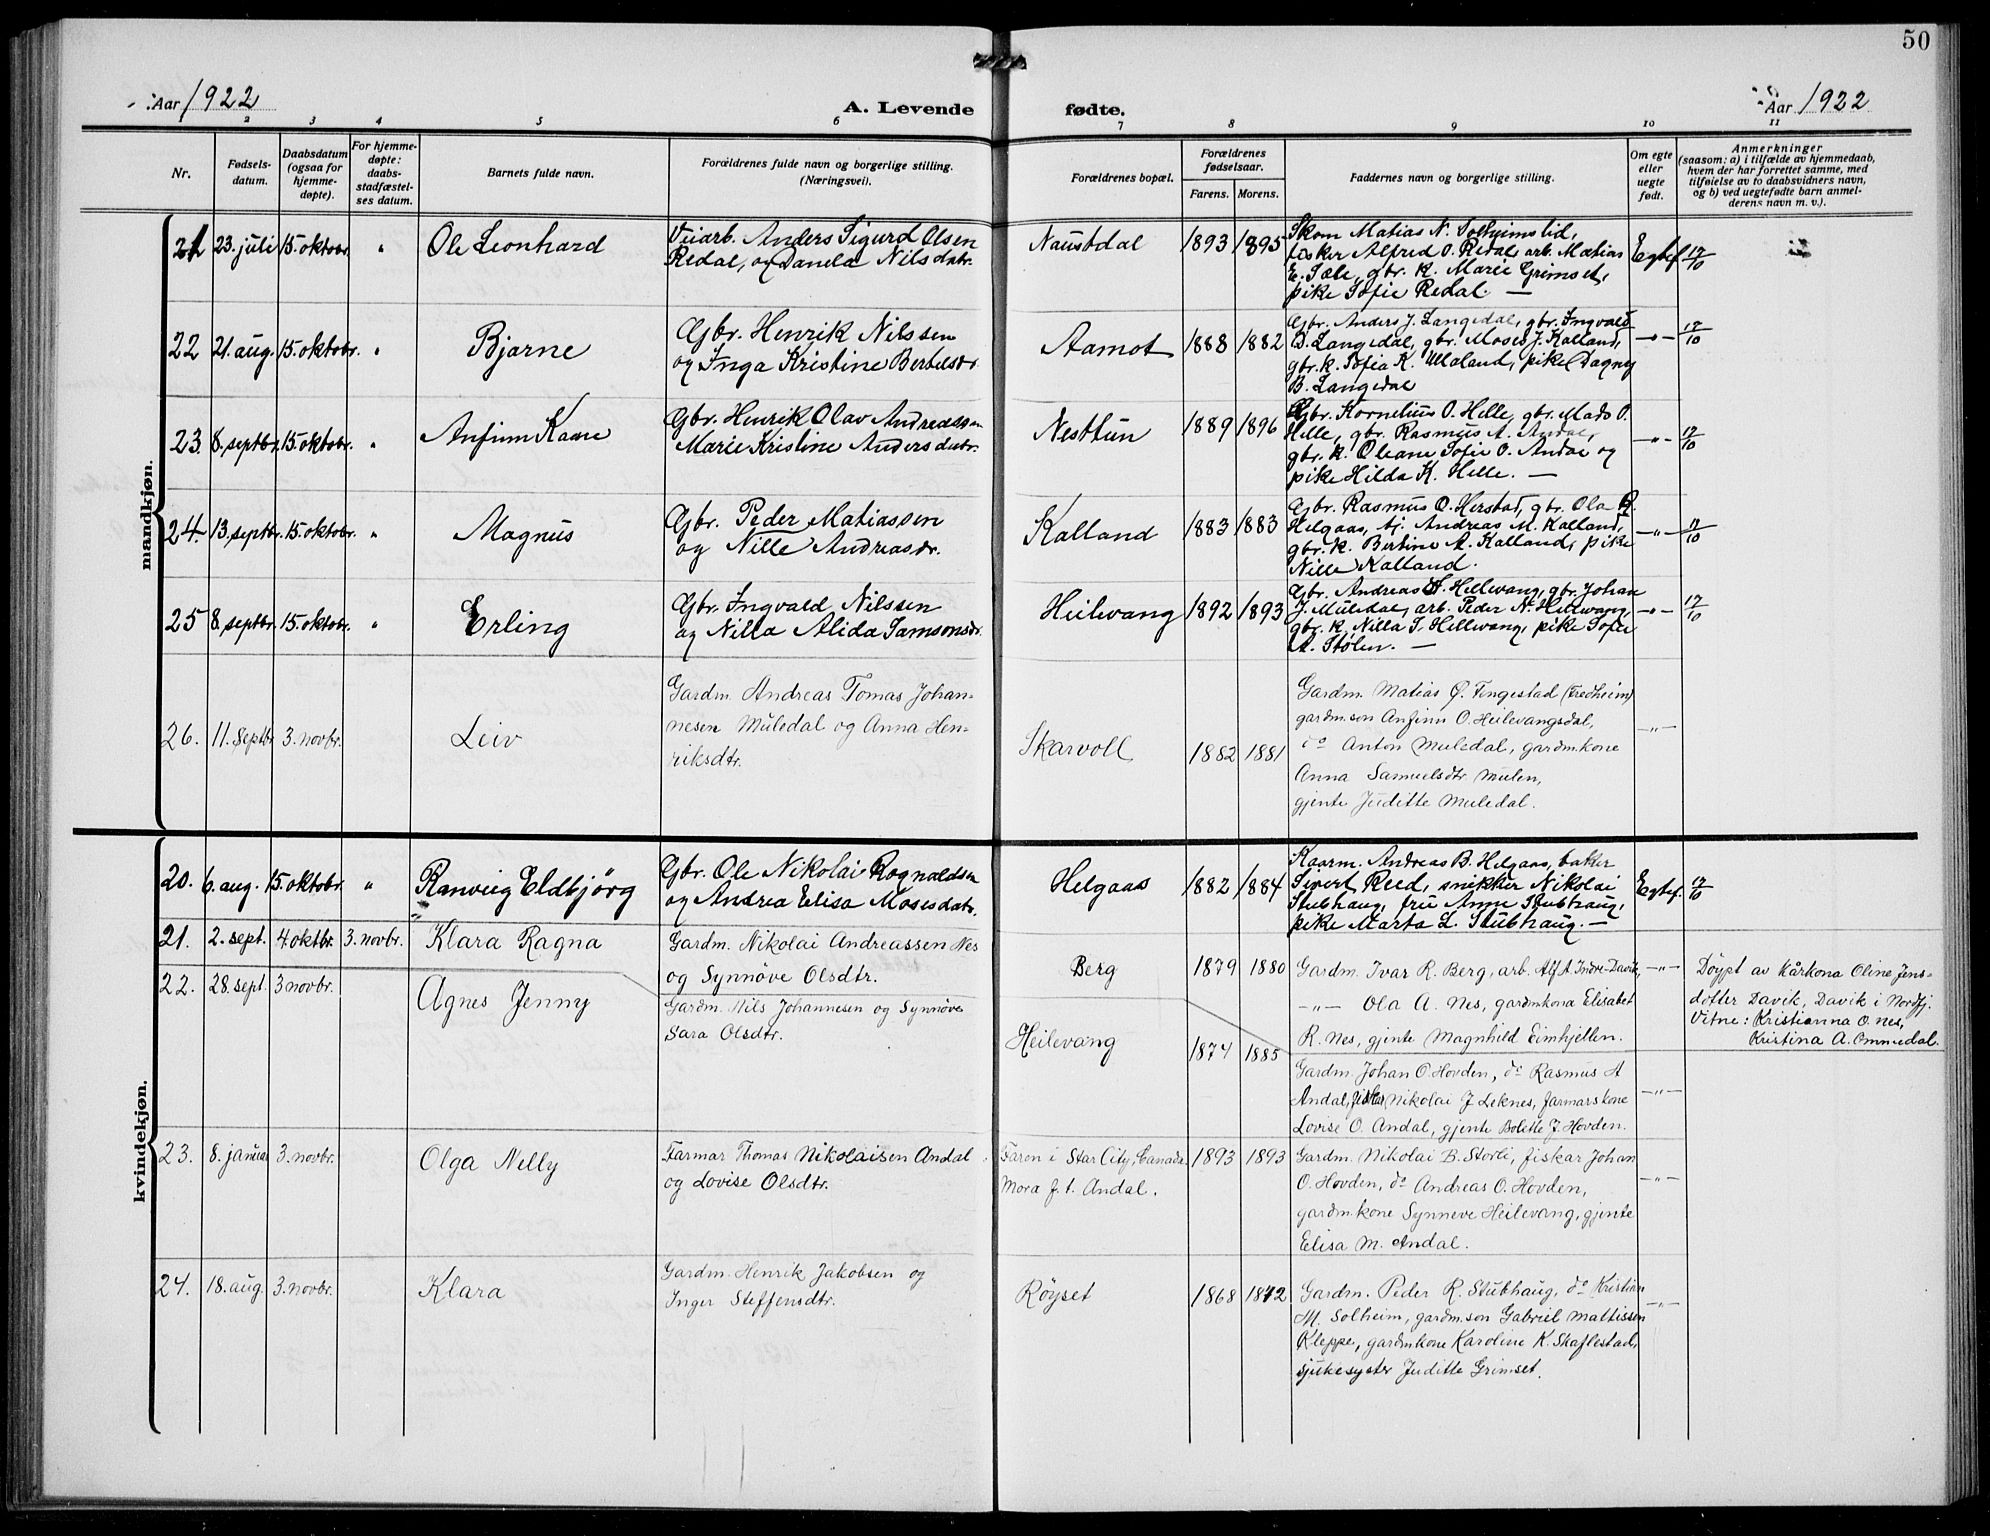 50
Aar 1922
A. Levende
fødte.
Aar 1922
1 2 3 4 5 6 7 8 9 10 11
Nr.
Fødsels-
datum.
Daabsdatum
(ogsaa for
hjemme-
døpte).
For hjemme-
døpte:
daabs-
stadfæstel-
ses datum.
Barnets fulde navn.
Forældrenes fulde navn og borgerlige stilling.
(Næringsvei).
Forældrenes bopæl.
Forældrenes
fødselsaar.
Farens. Morens.
Faddernes navn og borgerlige stilling.
Om egte
eller
uegte
født.
Anmerkninger
(saasom: a) i tilfælde av hjemmedaab,
hvem der har forrettet samme, med
tilføielse av to daabsvidners navn,
og b) ved uegtefødte barn anmel-
derens navn m. v.).
mandkjøn.
21 23. juli 15. oktobr. " Ole Leonhard
Veiarb. Anders Sigurd Olsen
Redal, og Danela Nilsdatr.
Naustdal 1893 1895
Skom Matias N. Solheimslid,
fisker Alfred O. Redal, arb. Matias
E. Sæle, gbr. k. Marie Grimset,
pike Sofie Redal. —
Egtef. 17/10
22 21. aug. 15. oktobr. " Bjarne
Gbr. Henrik Nilssen
og Inga Kristine Bertelsdr.
Aamot 1888 1882
Gbr. Anders J. Langedal, gbr. Ingvald
B. Langedal, gbr. Moses J. Kalland,
gbr. k. Sofia K. Ullaland, pike Dagny
B. Langedal
—"— 17/10
23. 8. septbr. 15. oktobr. " Anfinn Kaare
Gbr. Henrik Olav Andreassen
Marie Kristine Andersdatr.
Nesttun 1889 1896
Gbr. Kornelius O. Helle, gbr. Mads O.
Helle, gbr. Rasmus A. Andal,
gbr. k. Oleane Sofie O. Andal og
pike Hilda K. Helle. —
—"— 17/10
24. 13. septbr. 15. oktobr. " Magnus
Gbr. Peder Matiassen
og Nille Andreasdr.
Kalland 1883 1883
Gbr. Rasmus O. Herstad, gbr. Ola R.
Helgaas, tj. Andreas M. Kalland,
gbr. k. Bertine A. Kalland, pike
Nille Kalland.
—"— 17/10
25 8. septbr. 15. oktobr. " Erling
Gbr. Ingvald Nilssen
og Nilla Alida Samsonsdr.
Heilevang 1892 1893
Gbr. Andreas A. Hellevang, gbr. Johan
J. Muledal, arb. Peder N. Hellevang,
gbr. k. Nilla S. Hellevang, pike Sofie
A. Stølen. —
—"— 17/10
26. 11. Septbr. 3. novbr. Leiv
Gardm. Andreas Tomas Johan-
nesen Muledal og Anna Hen-
riksdtr.
Skarvoll 1882 1881
Gardm. Matias Ø. Tingestad (Fredheim)
gardm.son Anfinn O. Heilevangsdal,
do Anton Muledal, gardmkone
Anna Samuelsdtr Mulen,
gjente Juditte Muledal.
—"—
kvindekjøn.
20. 6. aug. 15. oktobr. " Ranveig Eldbjørg
Gbr. Ole Nikolai Rognaldsen
og Andrea Elisa Mosesdatr.
Helgaas 1882 1884
Kaarm. Andreas B. Helgaas, baker
Sivert Reed, snikker Nikolai
Stubhaug, fru Anne Stubhaug,
pike Marta L. Stubhaug. —
Egtef. 17/10
21. 2. sept. 4 oktbr. 3. novbr. Klara Ragna
Gardm. Nikolai Andreassen Nes
og Synnøve Olsdtr.
Berg 1879 1880
Gardm. Ivar R. Berg, arb. Alf A. Indre-Davik,
—"— Ola A. Nes, gardmkona Elisabet
R. Nes, gjente Magnhild Eimhjellen.
—"—
Døypt av Kårkona Oline Jens-
dotter Davik, Davik i Nordfj.
Vitne: Kristianna O. Nes,
Kristina A. Ommedal.
22. 28. sept. 3 novbr. Agnes Jenny
Gardm. Nils Johannesen og Synnøve
Sara Olsdtr.
Heilevang 1874 1885
Gardm. Johan O. Hovden, do Rasmus A
Andal, fisker Nikolai J Leknes, farmarskone
Lovise O. Andal, gjente Bolette J. Hovden.
—"—
23. 8. januar 3. novbr. Olga Nelly
Farmar Thomas Nikolaisen Andal
og Lovise Olsdtr.
Faren i Star City, Canada.
Mora f. t. Andal.
1893 1893
Gardm. Nikolai B. Storli, fiskar Johan
O. Hovden, do Andreas O. Hovden,
gardmkone Synneve Heilevang, gjente
Elisa M. Andal.
—"—
24. 18. aug. 3. novbr. Klara
Gardm. Henrik Jakobsen og
Inger Steffensdtr.
Røyset 1868 1872
Gardm. Peder R. Stubhaug, do Kristian
M. Solheim, gardm.son Gabriel Mattissen
Kleppe, gardmkone Karoline K. Skaflestad,
sjukesyster Juditte Grimset.
—"—